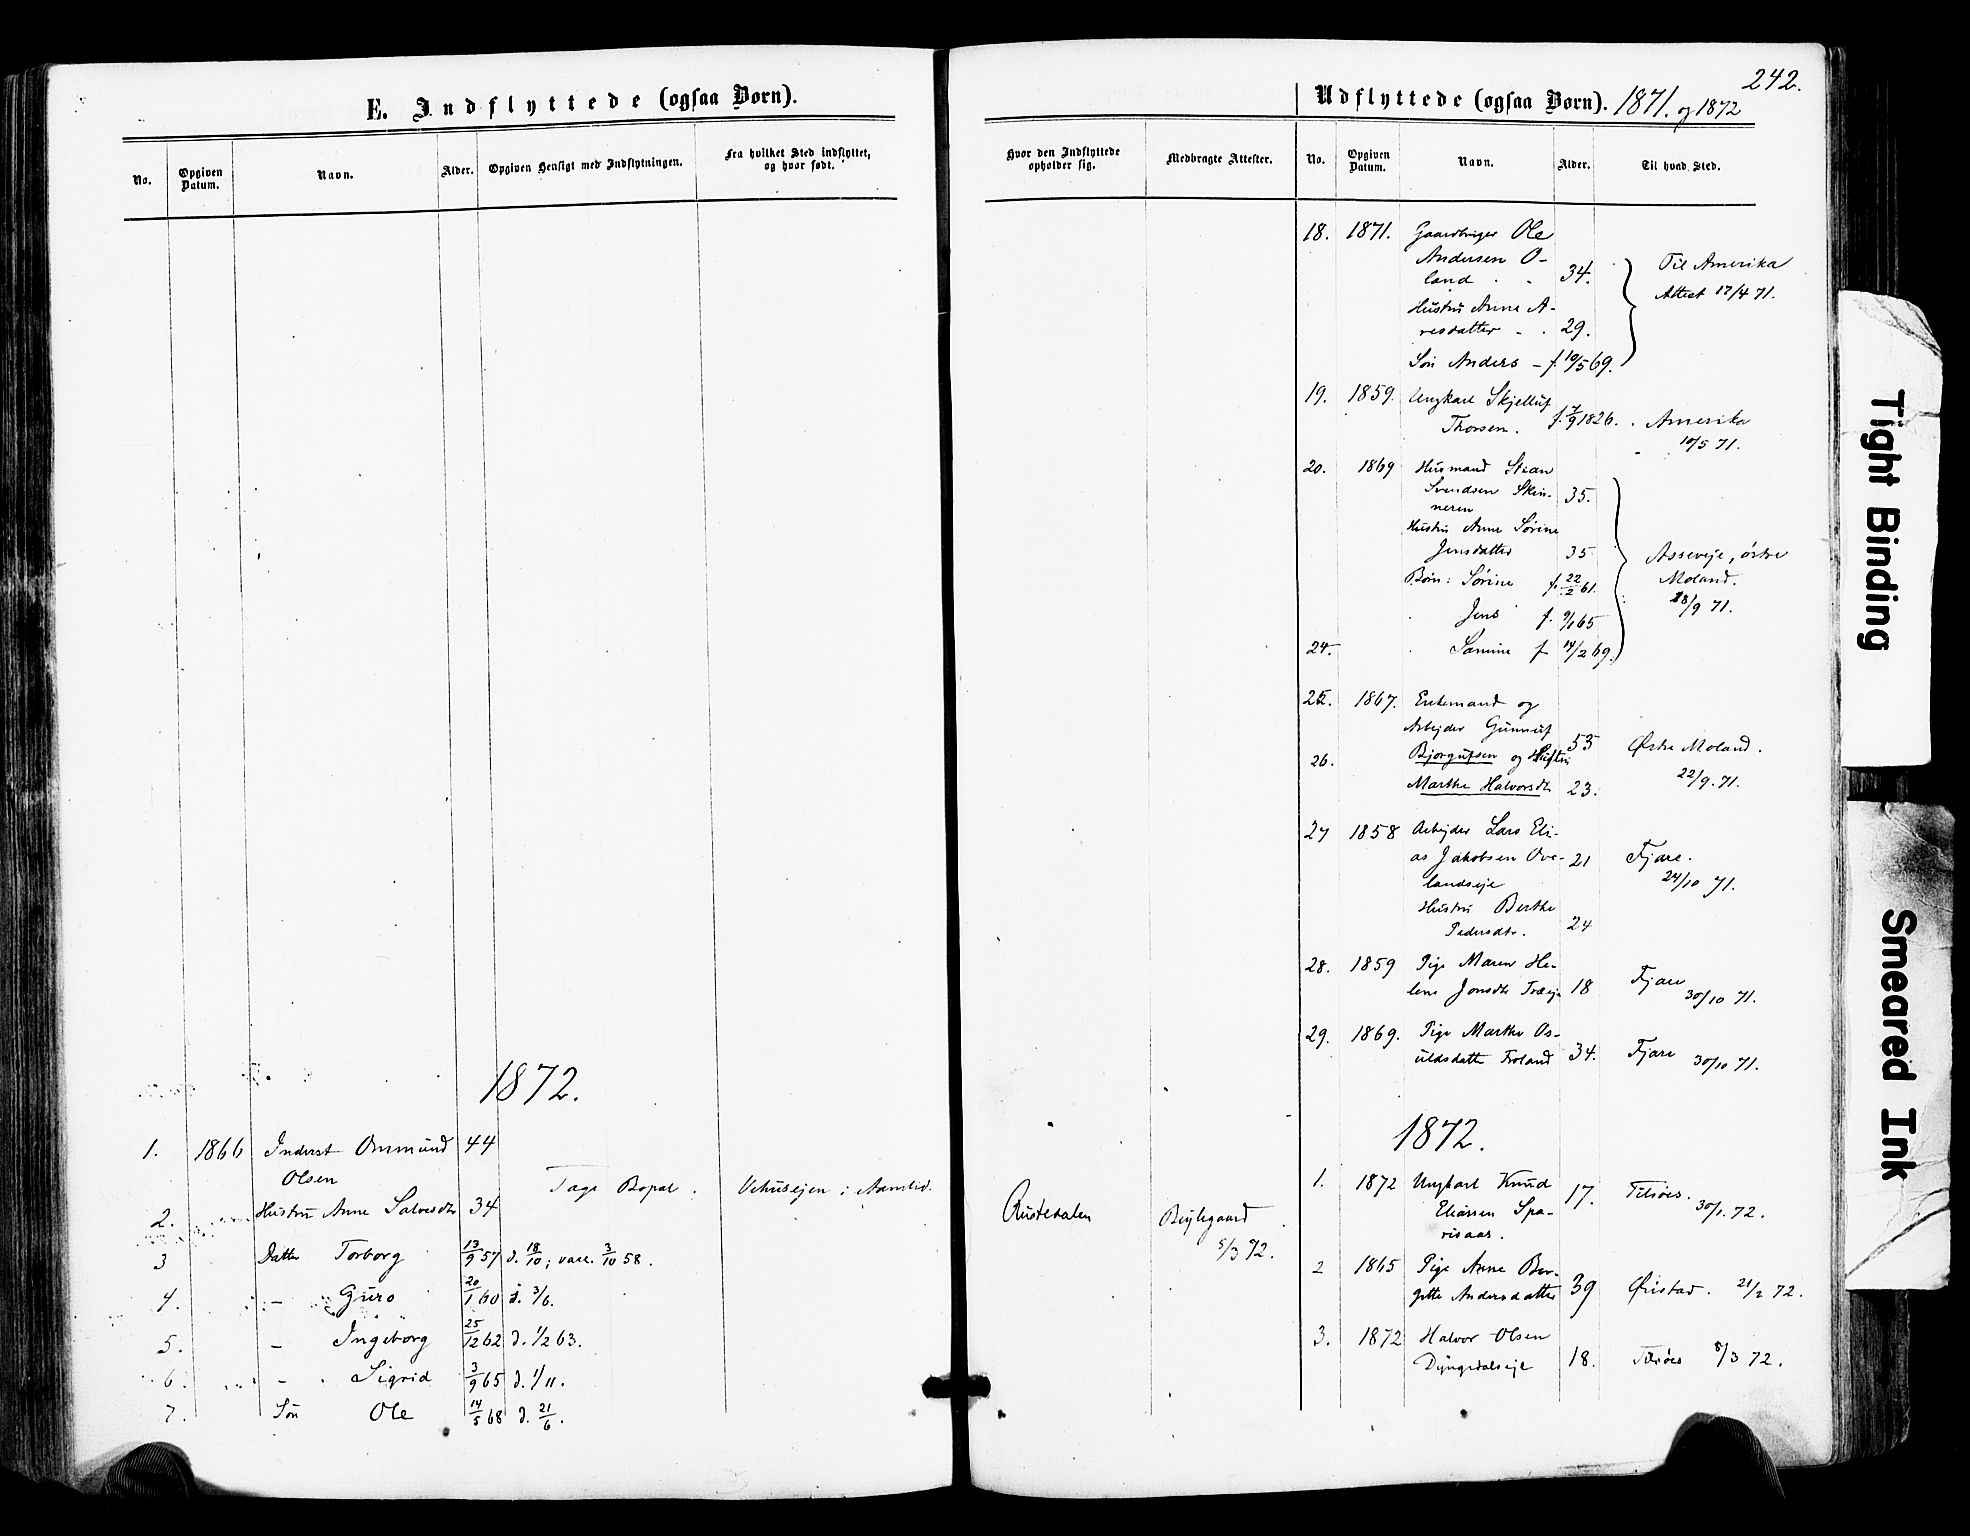 E. Indflyttede (ogsaa Børn).
No.
Opgiven Datum.
Navn.
Alder.
Opgiven Hensigt med Indflytningen.
Fra hvilket Sted indflyttet, og hvor født.
1872.
1. 1866 Inderst Ommund 44
Olsen
Tage Bopæl. Vehusejen i Aamlid.
2. Hustru Anne Salvesdtr 34
3 Datter Torborg 13/9 57 d. 18/10; vacc. 3/10 58.
4. - Guro 20/1 60 d. 3/6.
5. - Ingeborg 25/12 62 d. 1/2 63.
6. - Sigrid 3/9 65 d. 1/11.
7. Søn Ole 14/5 68 d. 21/6.
242.
Udflyttede (ogsaa Børn). 1871. og 1872
Hvor den Indflyttede opholder sig.
Medbragte Attester.
No.
Opgiven Datum.
Navn.
Alder.
Til hvad Sted.
Rustedalen
5/3 72.
18. 1871. Gaardbruger Ole
Andersen O-
land 34. Til Amerika
Attest 17/4 71.
Hustru Anne A-
resdatter 29.
Søn Anders - f. 10/5 69.
19. 1859. Ungkarl Skjelluf
Thorsen. f. 7/9 1826. Amerika
10/5 71.
20. 1869 Husmand Stean
Svendsen Skin-
neren 35.
Hustru Anne Sørine
Jensdatter 35
Asseveje, østre
Moland.
28/9 71.
Børn: Sørine f. 22/2 61.
Jens f. 9/1 65
24. Samine f 14/2 69.
25. 1867. Enkemand og
Arbejder Gunnuf
Bjorgufsen og Hustru 53 Østre Moland.
26. Marthe Halvorsdtr 23. 22/9. 71.
27 1858 Arbejder Lars Eli-
as Jakobsen Ove- 21 Fjære.
landseje 24/10 71.
Hustru Berthe
Pedersdtr. 24
28. 1859 Pige Maren He-
lene Jonsdtr Træeje 18 Fjære 30/10 71.
29. 1869. Pige Marthe Os-
uldsdatter Froland 34. Fjære 30/10 71.
1872.
1. 1872 Ungkarl Knud
Eliassen Spa- 17. 30/1. 72.
risaas.
2 1865 Pige Anne Ber-
gitte Andersdatter 39 Øiestad. 21/2 72.
3. 1872 Halvor Olsen
Dyngedalseje 18. 8/3 72.
Tight Binding
Smeared Ink